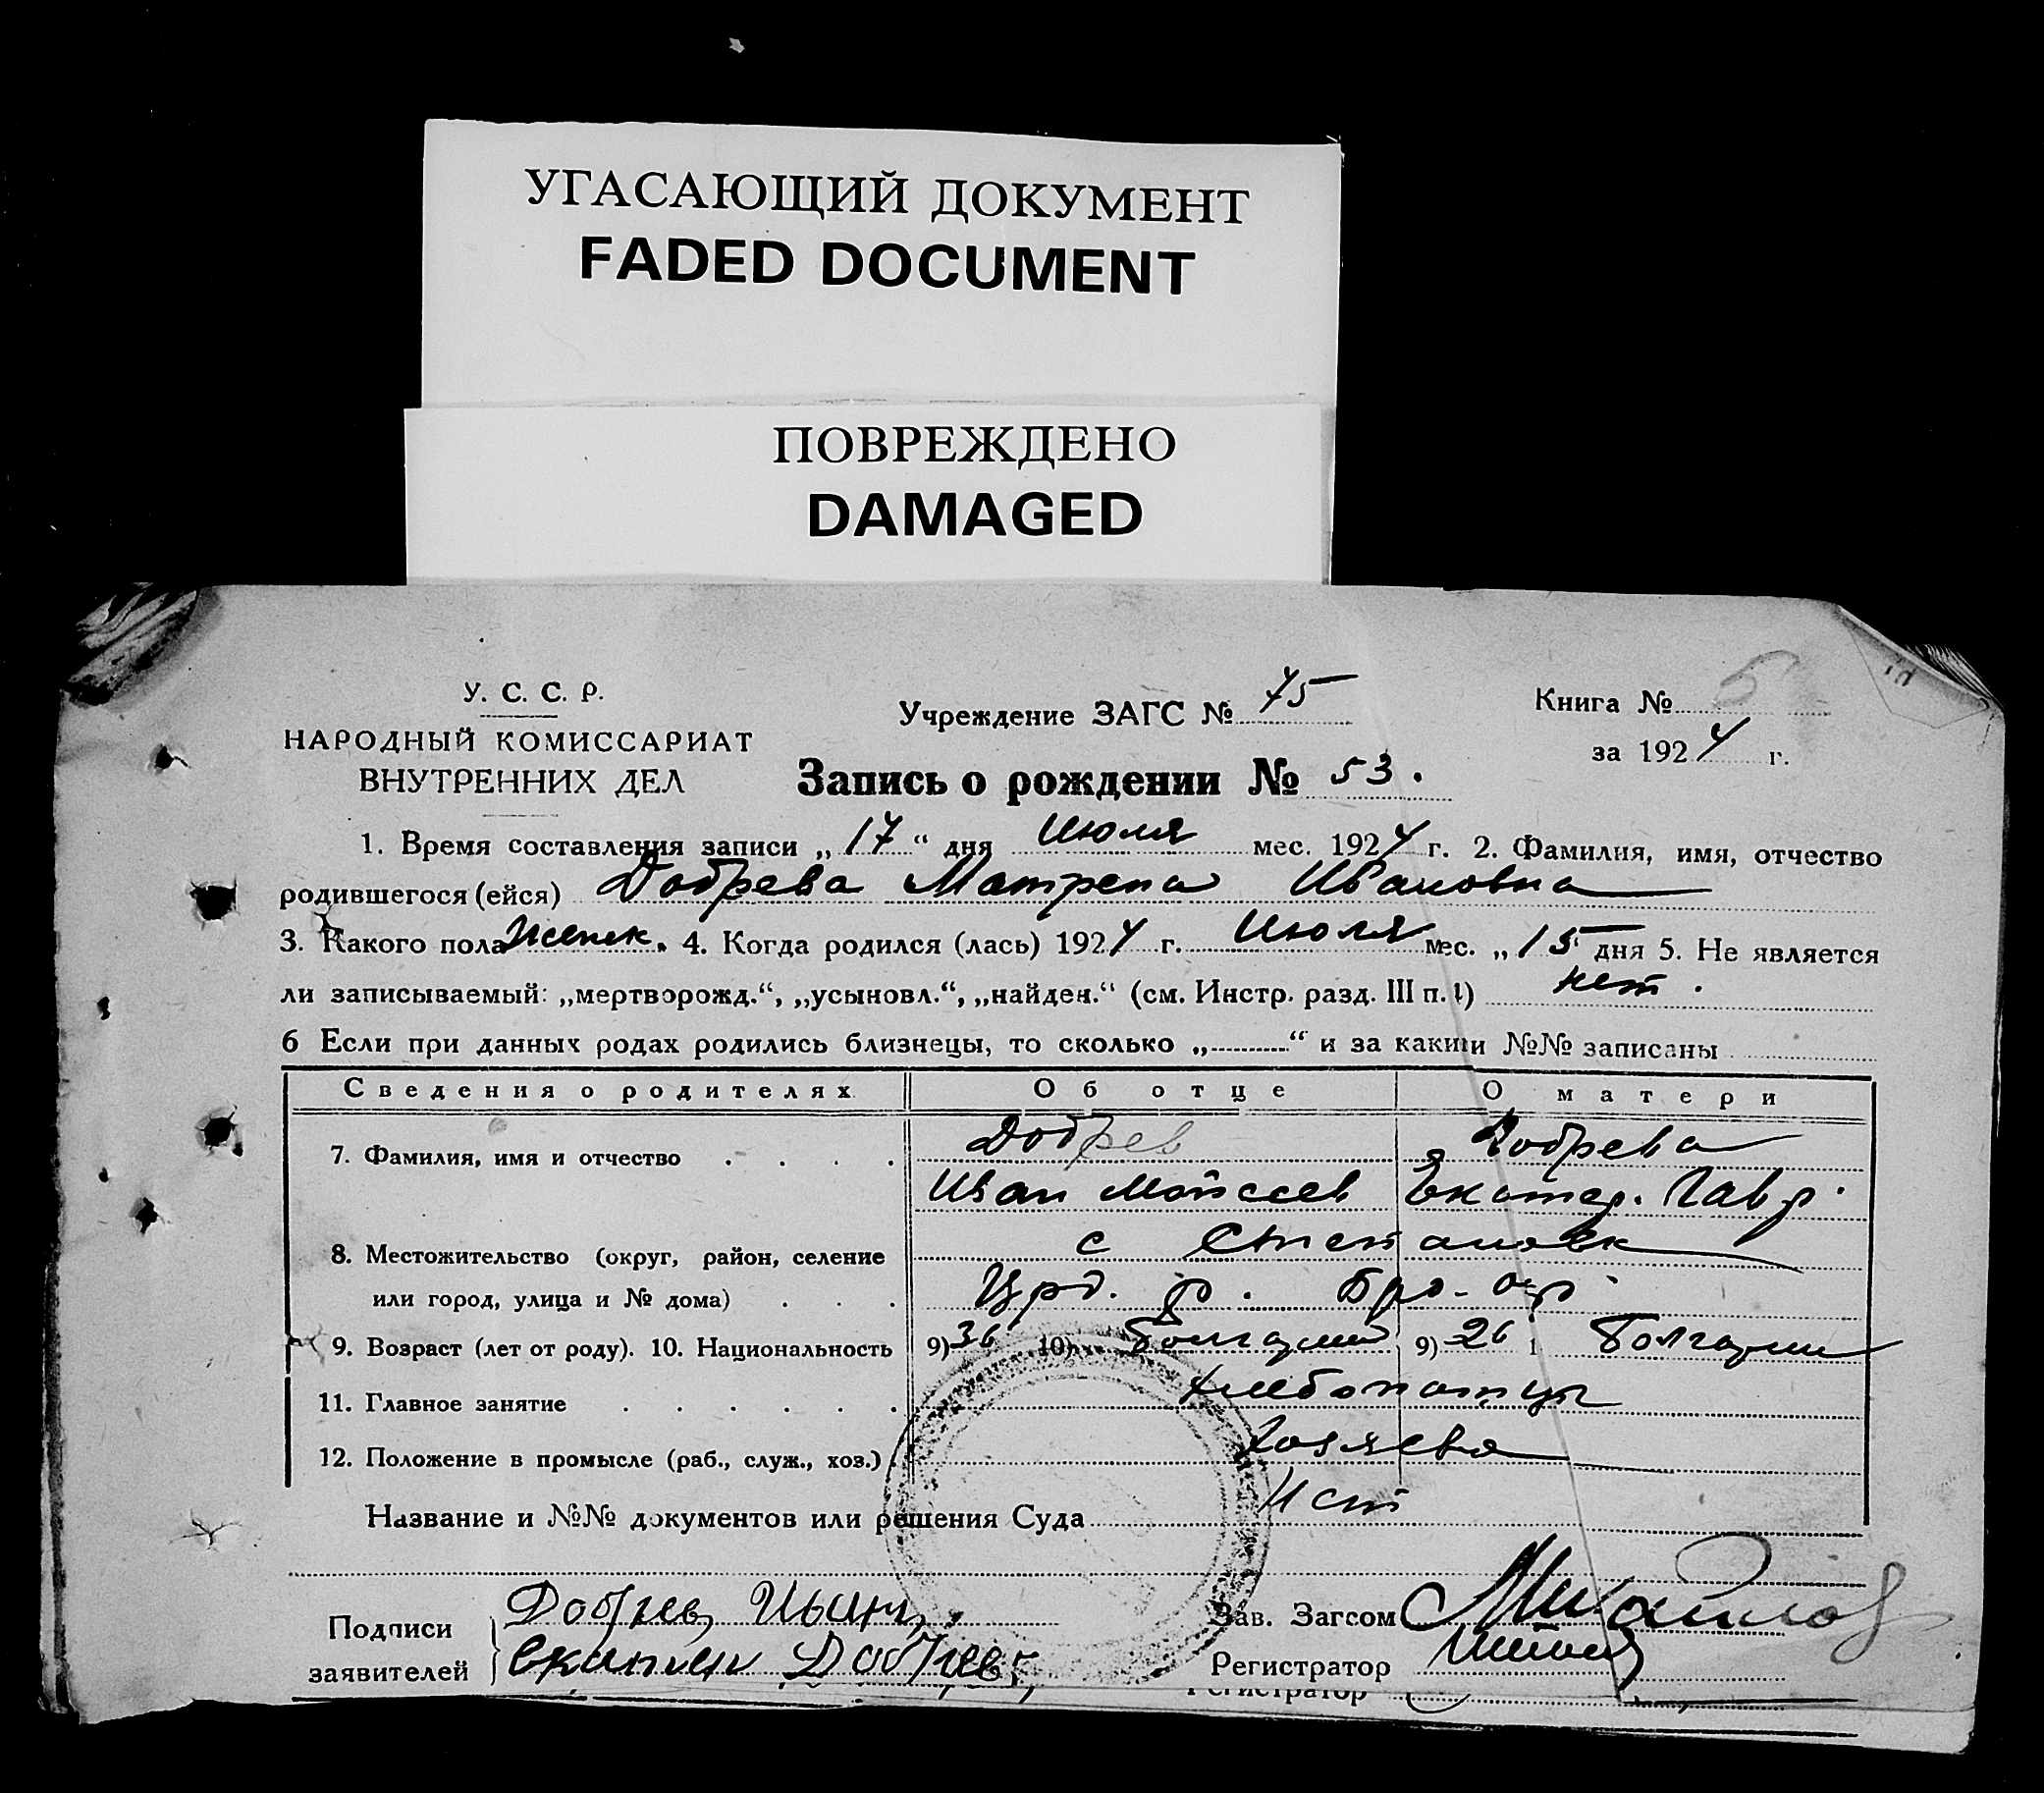 УГАСАЮЩИЙ ДОКУМЕНТ
FADED DOCUMENT
ПОВРЕЖДЕНО
DAMAGED
У. С. С. Р.
НАРОДНЫЙ КОМИССАРИАТ
ВНУТРЕННИХ ДЕЛ
Учреждение ЗАГС № 75
Книга № 5
за 1924 г.
Запись о рождении № 53.
1. Время составления записи „17“ дня Июля мес. 1924 г. 2. Фамилия, имя, отчество
родившегося (ейся) Добрева Матрена Ивановна
3. Какого пола Женск. 4. Когда родился (лась) 1924 г. Июля мес. „15 дня 5. Не является
ли записываемый: „мертворожд.“, „усыновл.“, „найден.“ (см. Инстр. разд. III п. 1) нет.
6 Если при данных родах родились близнецы, то сколько „..........“ и за какими №№ записаны
Сведения о родителях Об отце О матери
7. Фамилия, имя и отчество Добрев Добрева
Иван Мойсеев Екатер. Гавр.
8. Местожительство (округ, район, селение с Степановк
или город, улица и № дома) Црд. р.
9. Возраст (лет от роду). 10. Национальность 9) 36 10) Болгарин 9) 26 Болгарин
11. Главное занятие Хлебопашцы
12. Положение в промысле (раб., служ., хоз.) Хозяева
Название и №№ документов или решения Суда Нет
Подписи
заявителей
Добрев Иван
Екатер Добрев
Зав. Загсом Михайлов
Регистратор
Регистратор